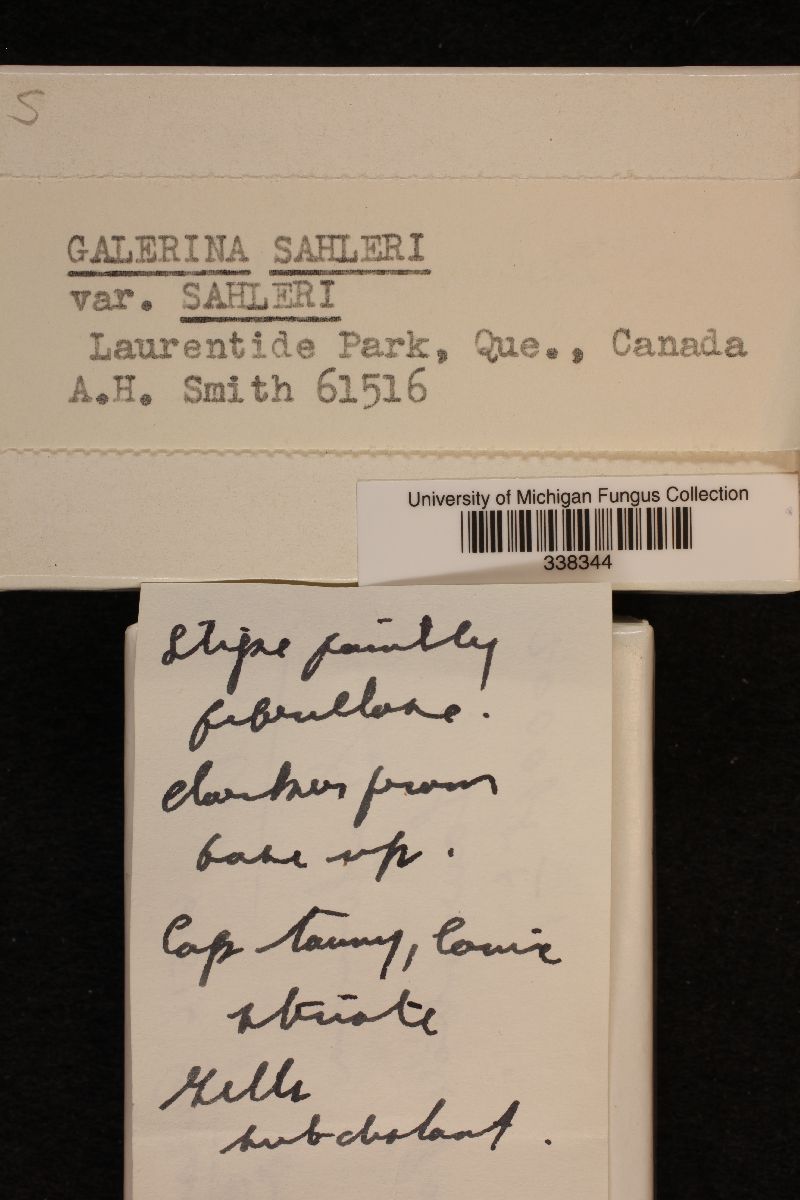 S
GALERINA SAHLERI
var. SAHLERI
Laurentide Park, Que., Canada
A.H. Smith 61516
University of Michigan Fungus Collection
338344
Stipe faintly
fibrillose.
darker from
base up.
Cap tawny, conic
striate
Gills
subdistant.